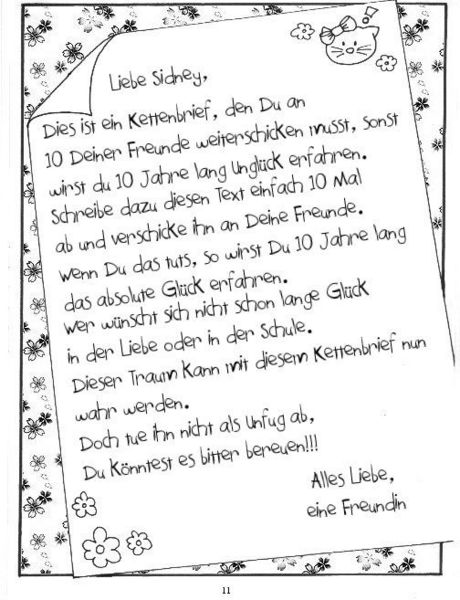 Liebe Sidney,
Dies ist ein Kettenbrief, den Du an
10 Deiner Freunde weiterschicken musst, sonst
wirst du 10 Jahre lang Unglück erfahren.
Schreibe dazu diesen Text einfach 10 Mal
ab und verschicke ihn an Deine Freunde.
wenn Du das tuts, so wirst Du 10 Jahre lang
das absolute Glück erfahren.
wer wünscht sich nicht schon lange Glück
in der Liebe oder in der Schule.
Dieser Traum kann mit diesem Kettenbrief nun
wahr werden.
Doch tue ihn nicht als Unfug ab,
Du könntest es bitter bereuen!!!
Alles Liebe,
eine Freundin
11